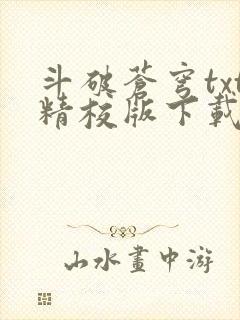 斗破蒼穹txt
精校版下載
山水畫中游